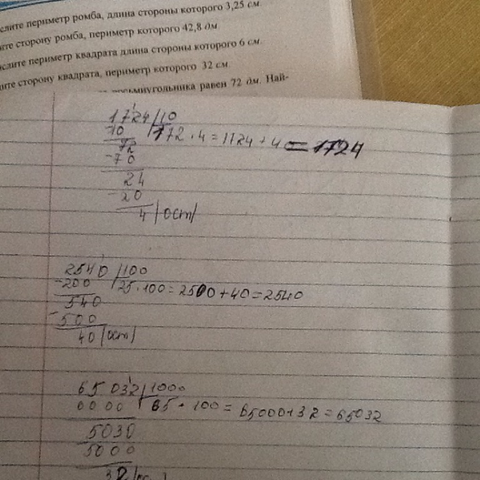 слите периметр ромба, длина стороны которого 3,25 см.
ите сторону ромба, периметр которого 42,8 дм.
ислите периметр квадрата длина стороны которого 6 см.
ите сторону квадрата, периметр которого 32 см.
восьмиугольника равен 72 дм. Най-
1724 10
10 172 · 4 = 1724 + 4 = 1724
72
-70
24
-20
4 (ост)
2540 100
-200 25 · 100 = 2500 + 40 = 2540
540
-500
40 (ост)
65 032 1000
0000 65 · 100 = 65000 + 32 = 65032
5030
5000
32